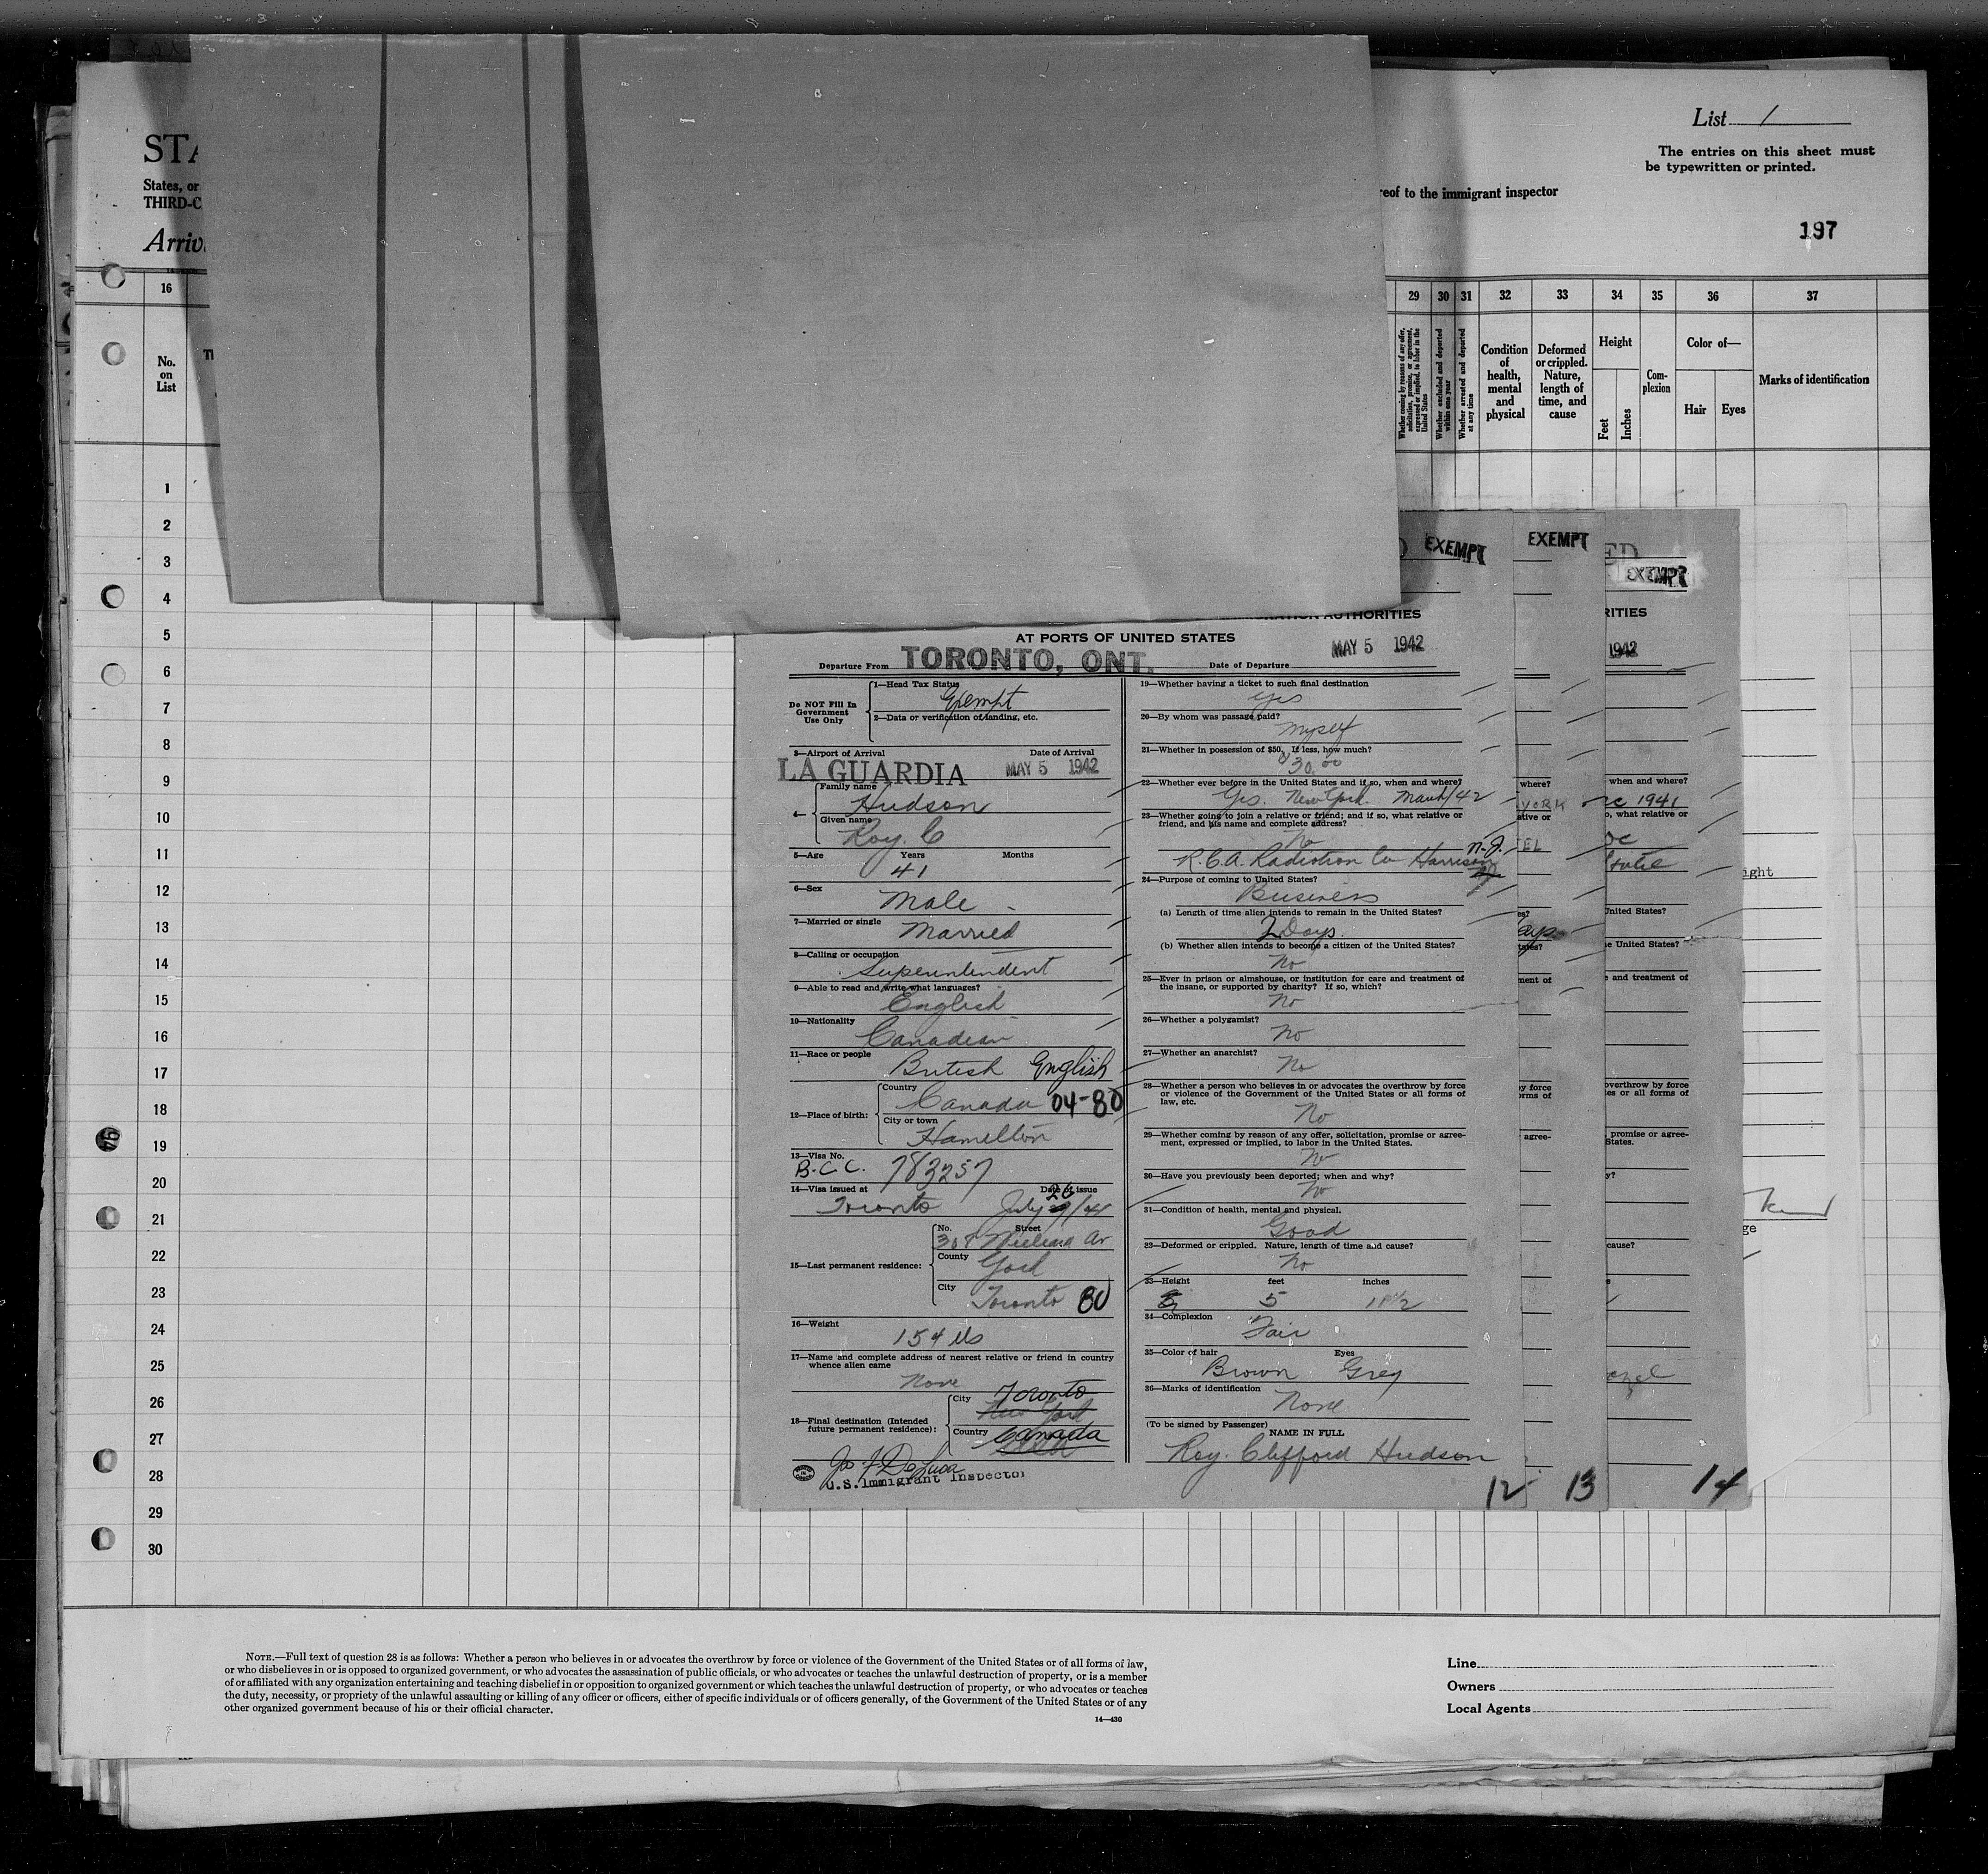 List 1
The entries on this sheet must
be typewritten or printed.
STA
States, or
THIRD-C
reof to the immigrant inspector
Arriv
197
16 29 30 31 32 33 34 35 36 37
No.
on
List
Whether coming by reasons of any offer, solicitation, promise, or agreement, expressed or implied, to labor in the United States
Whether excluded and deported within one year
Whether arrested and deported at any time
Condition
of
health,
mental
and
physical
Deformed
or crippled.
Nature,
length of
time, and
cause
Height
Feet Inches
Com-
plexion
Color of—
Hair Eyes
Marks of identification
1
2
3
4
5
6
7
8
9
10
11
12
13
14
15
16
17
18
19
20
21
22
23
24
25
26
27
28
29
30
EXEMPT
EXEMPT
EXEMPT
AUTHORITIES
RITIES
AT PORTS OF UNITED STATES
Departure From TORONTO, ONT. Date of Departure MAY 5 1942
1942
Do NOT Fill In
Government
Use Only
1—Head Tax Status
Exempt
2—Data or verification of landing, etc.
3—Airport of Arrival Date of Arrival
LA GUARDIA MAY 5 1942
4—
Family name
Hudson
Given name
Roy. C
5—Age Years Months
41
6—Sex
Male
7—Married or single
Married
8—Calling or occupation
Superintendent
9—Able to read and write what languages?
English
10—Nationality
Canadian
11—Race or people
British English
12—Place of birth:
Country
Canada 04-80
City or town
Hamilton
13—Visa No.
B.C.C. 783257
14—Visa issued at Date of issue
Toronto July 26/41
15—Last permanent residence:
No. Street
308 Av
County
York
City
Toronto 80
16—Weight
154 lbs
17—Name and complete address of nearest relative or friend in country
whence alien came
None
18—Final destination (Intended
future permanent residence):
City Toronto
New York
Country Canada
U.S. Immigrant Inspector
19—Whether having a ticket to such final destination
Yes
20—By whom was passage paid?
Myself
21—Whether in possession of $50. If less, how much?
$30.00
22—Whether ever before in the United States and if so, when and where?
Yes. New York. March/42
23—Whether going to join a relative or friend; and if so, what relative or
friend, and his name and complete address?
No
R.C.A. Radiotron Co Harrison N.J.
24—Purpose of coming to United States?
Business
(a) Length of time alien intends to remain in the United States?
2 Days.
(b) Whether alien intends to become a citizen of the United States?
No
25—Ever in prison or almshouse, or institution for care and treatment of
the insane, or supported by charity? If so, which?
No
26—Whether a polygamist?
No
27—Whether an anarchist?
No
28—Whether a person who believes in or advocates the overthrow by force
or violence of the Government of the United States or all forms of
law, etc.
No
29—Whether coming by reason of any offer, solicitation, promise or agree-
ment, expressed or implied, to labor in the United States.
No
30—Have you previously been deported; when and why?
No
31—Condition of health, mental and physical.
Good
32—Deformed or crippled. Nature, length of time and cause?
No
33—Height feet inches
5 11½
34—Complexion
Fair
35—Color of hair Eyes
Brown Grey
36—Marks of identification
None
(To be signed by Passenger)
NAME IN FULL
Roy. Clifford Hudson
12 13 14
where?
YORK
ative or
EL
ays
ment of
by force
orms of
agree-
y?
when and where?
1941
o, what relative or
United States?
e United States?
e and treatment of
overthrow by force
es or all forms of
promise or agree-
States.
cause?
ight
ge
NOTE.—Full text of question 28 is as follows: Whether a person who believes in or advocates the overthrow by force or violence of the Government of the United States or of all forms of law,
or who disbelieves in or is opposed to organized government, or who advocates the assassination of public officials, or who advocates or teaches the unlawful destruction of property, or is a member
of or affiliated with any organization entertaining and teaching disbelief in or opposition to organized government or which teaches the unlawful destruction of property, or who advocates or teaches
the duty, necessity, or propriety of the unlawful assaulting or killing of any officer or officers, either of specific individuals or of officers generally, of the Government of the United States or of any
other organized government because of his or their official character.
14—430
Line
Owners
Local Agents